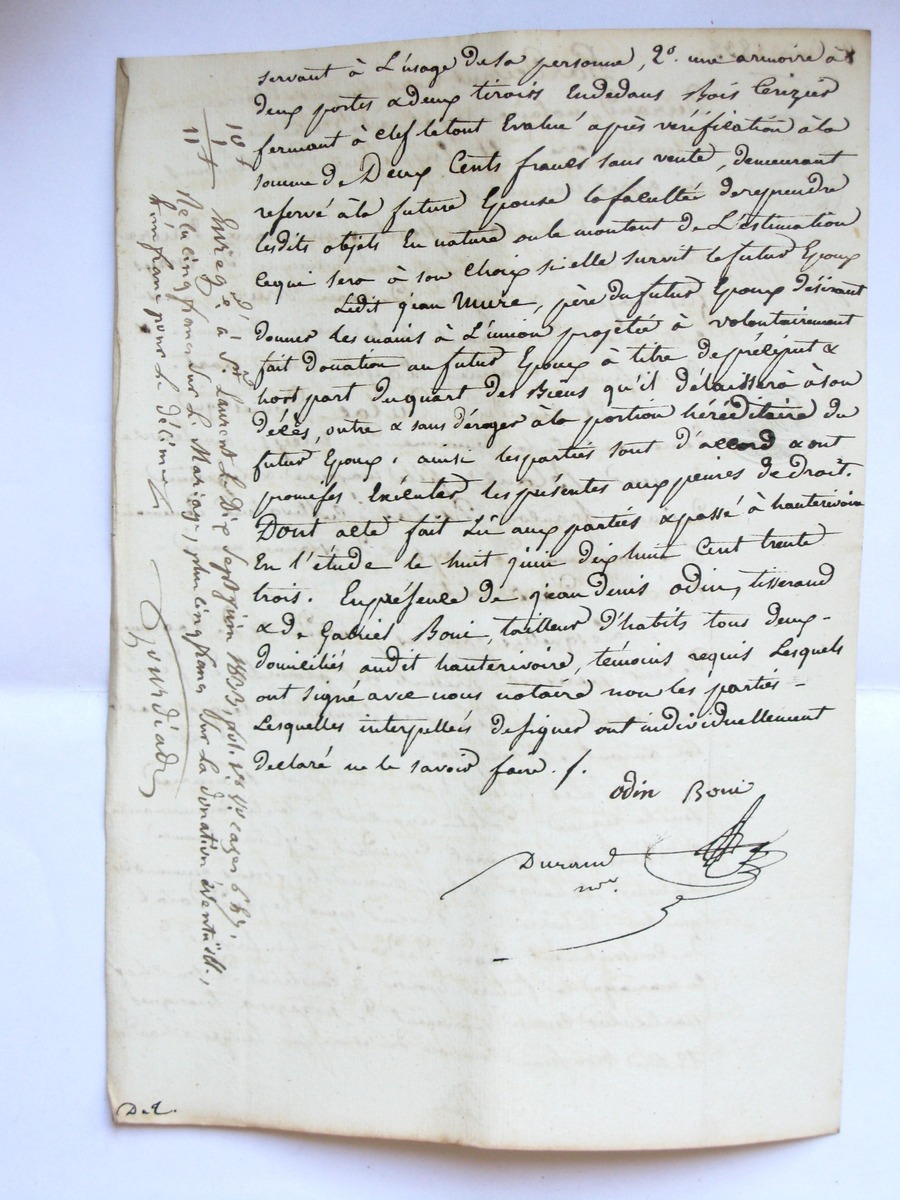 servant à L'usage de sa personne, 2º. une armoire à
deux portes & deux tiroirs Endedans Bois Cerizier
fermant à clef le tout Evalué après vérification à la
somme de Deux Cents francs sans vente, demeurant
reservé à la future Epouse la faculté de reprendre
lesdits objets En nature ou le montant de L'estimation
ce qui sera à son choix si elle survit le futur Epoux
Ledit jean Mure, père du futur Epoux désirant
donner les mains à L'union projetée à volontairement
fait donation au futur Epoux à titre de préciput &
hors part du quart des Biens qu'il délaissera à son
décès, outre & sans déroger à la portion héréditaire du
futur Epoux. ainsi les parties sont d'accord & ont
promises Exécuter les présentes aux peines de droit.
Dont acte fait Lu aux parties & passé à hauterivoire
En l'étude le huit juin dix huit Cent trente
trois. En présence de jean denis odin, tisserand
& de Gabriel Boni, tailleur d'habits tous deux
domiciliés audit hauterivoire, témoins requis Lesquels
ont signé avec nous notaire non les parties
Lesquelles interpellées de signer ont individuellement
declaré ne le savoir faire. /.
odin Boni
Durand
nre.
10 f
1
11 f
Enregé à St. Laurent le Dix Sept juin 1833, vol. cases 6 &
Reçu cinq francs sur le Mariage, plus cinq francs sur la donation éventuelle,
& un franc pour le décime
D. L.